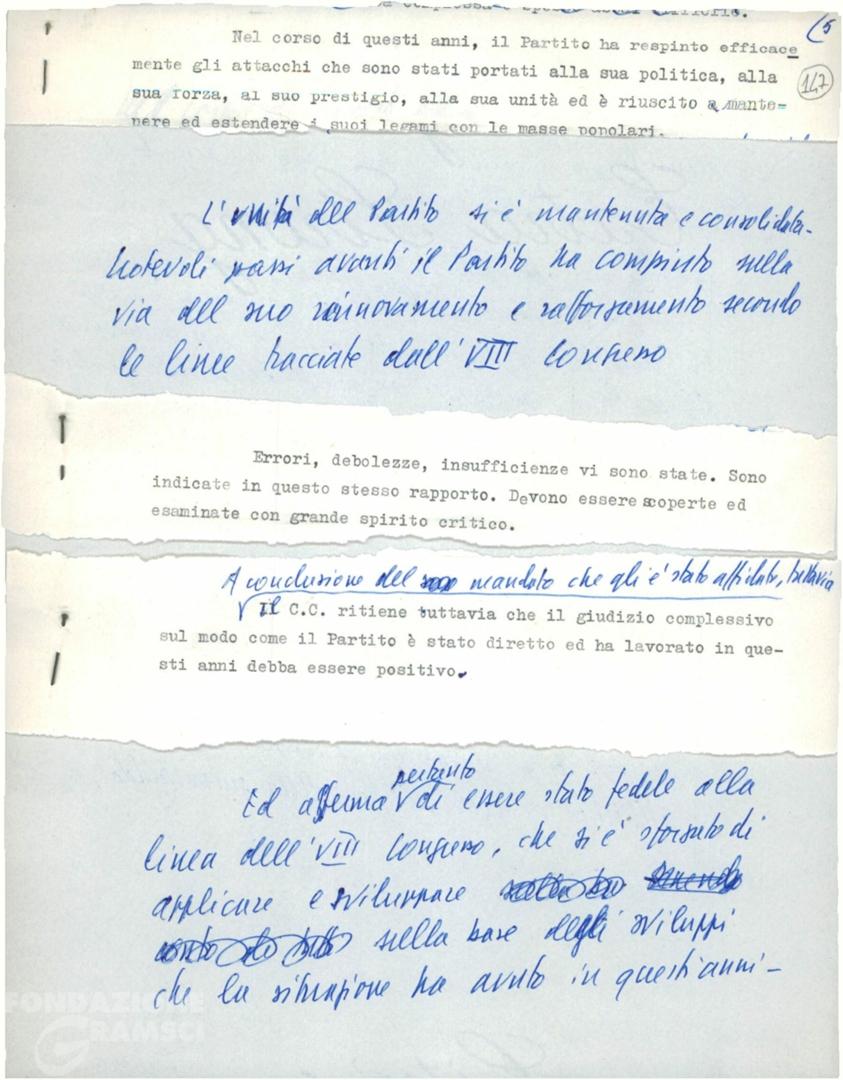 (5
147
Nel corso di questi anni, il Partito ha respinto efficace
mente gli attacchi che sono stati portati alla sua politica, alla
sua forza, al suo prestigio, alla sua unità ed è riuscito a mante=
nere ed estendere i suoi legami con le masse popolari.
L'unità del Partito si è mantenuta e consolidata.
Notevoli passi avanti il Partito ha compiuto sulla
via del suo rinnovamento e rafforzamento secondo
le linee tracciate dall'VIII Congresso
Errori, debolezze, insufficienze vi sono state. Sono
indicate in questo stesso rapporto. Devono essere scoperte ed
esaminate con grande spirito critico.
A conclusione del mandato che gli è stato affidato, tuttavia
Il C.C. ritiene tuttavia che il giudizio complessivo
sul modo come il Partito è stato diretto ed ha lavorato in que-
sti anni debba essere positivo.
pertanto
Ed afferma di essere stato fedele alla
linea dell'VIII Congresso, che si è sforzato di
applicare e sviluppare
sulla base degli sviluppi
che la situazione ha avuto in questi anni-
FONDAZIONE
GRAMSCI